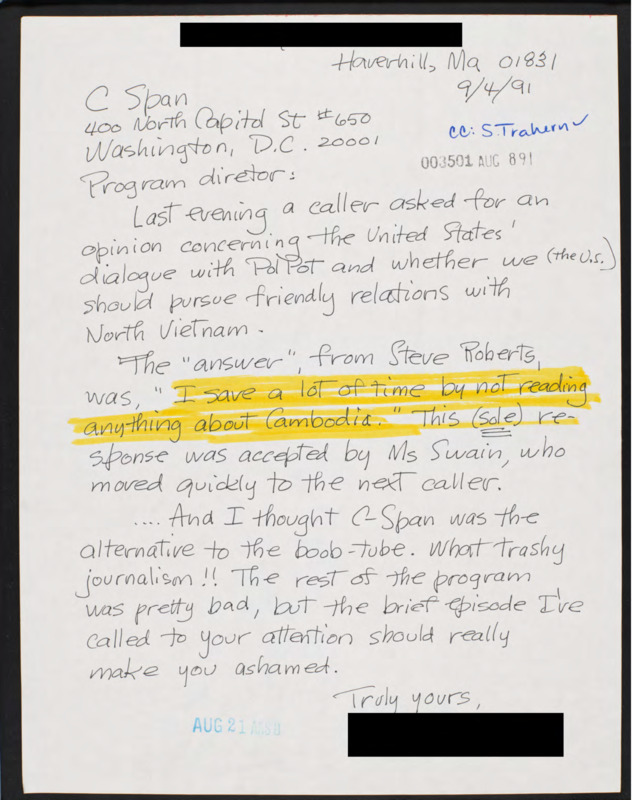 Haverhill, Ma 01831
9/4/91
C Span
400 North Capitol St #650
Washington, D.C. 20001
cc: S. Trahern ✓
003501 AUG 891
Program diretor:
Last evening a caller asked for an
opinion concerning the United States'
dialogue with Pol Pot and whether we (the U.S.)
should pursue friendly relations with
North Vietnam.
The "answer", from Steve Roberts,
was, "I save a lot of time by not reading
anything about Cambodia." This (sole) re-
sponse was accepted by Ms Swain, who
moved quickly to the next caller.
.... And I thought C-Span was the
alternative to the boob-tube. What trashy
journalism!! The rest of the program
was pretty bad, but the brief episode I've
called to your attention should really
make you ashamed.
Truly yours,
AUG 21